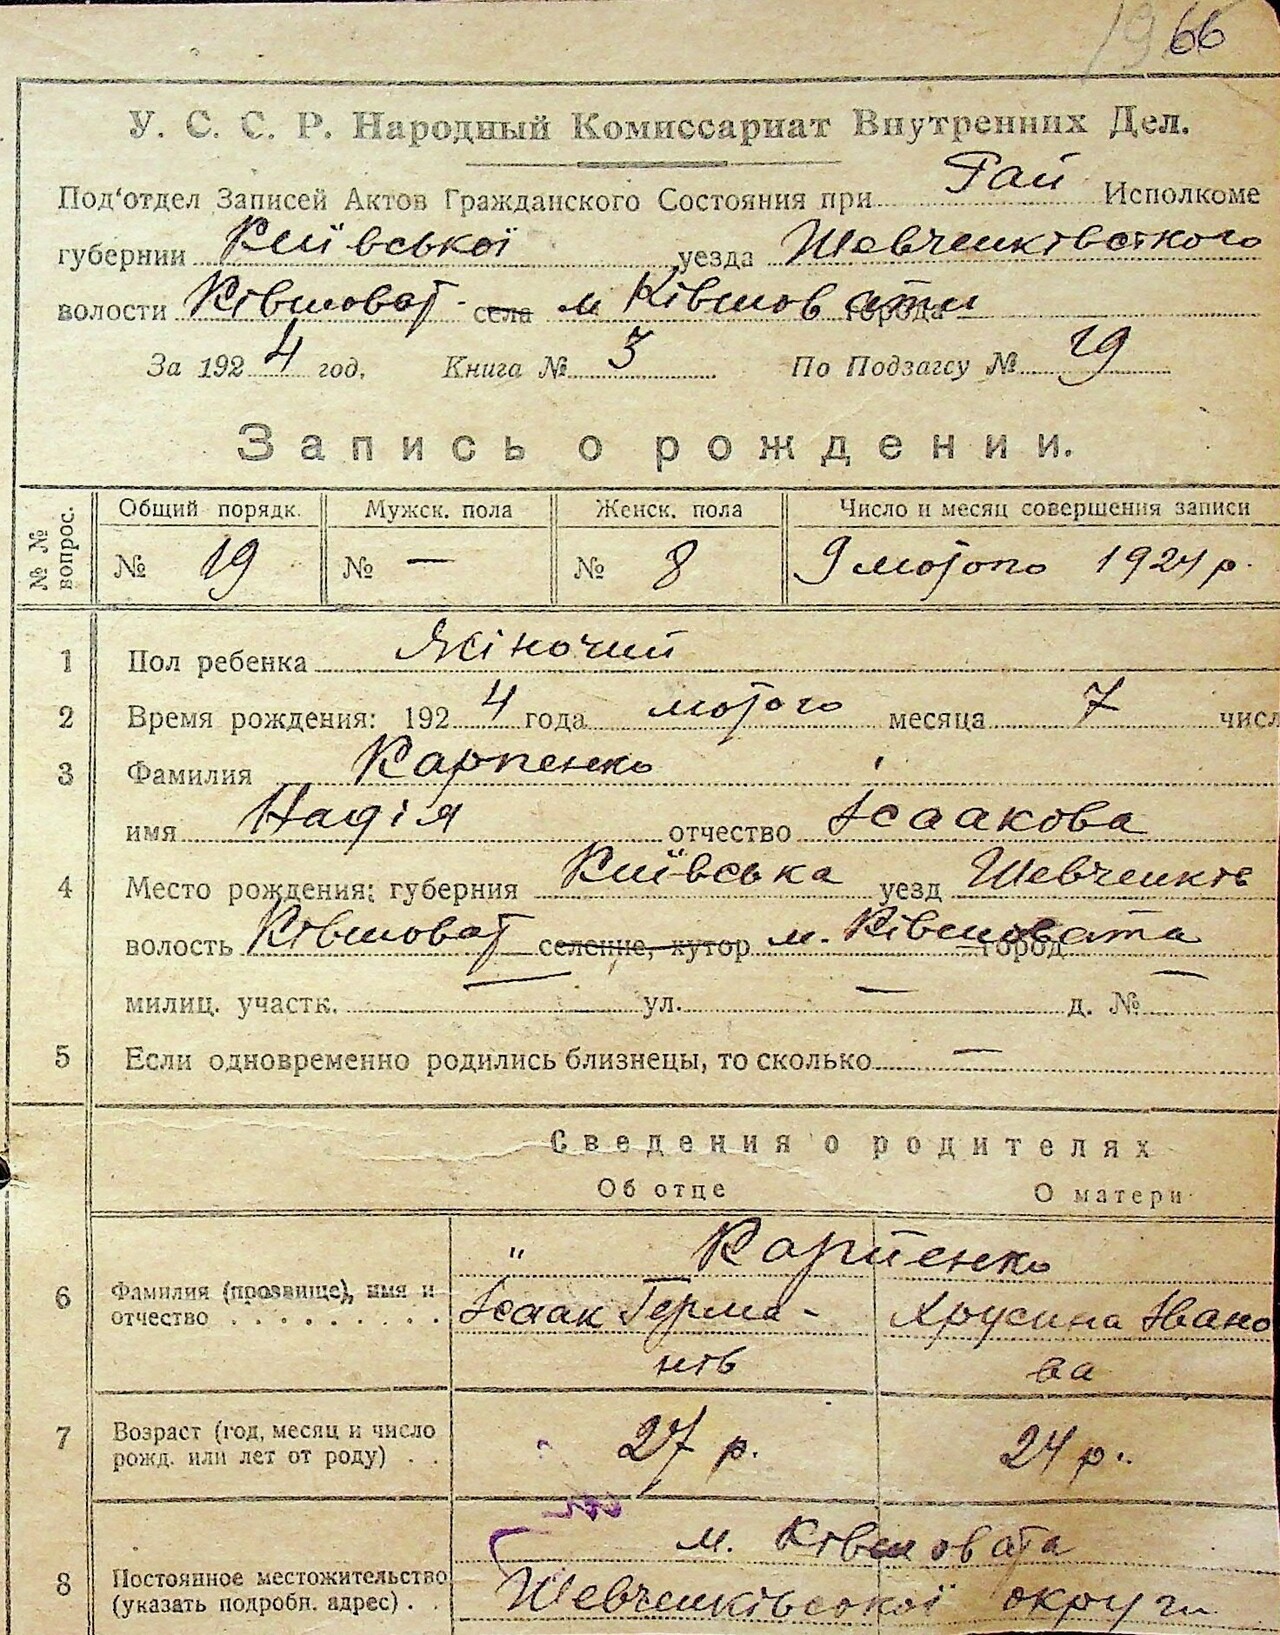 1966
У. С. С. Р. Народный Комиссариат Внутренних Дел.
Под‘отдел Записей Актов Гражданского Состояния при Рай Исполкоме
губернии Київської уезда Шевченківського
волости Ківшоват. села м Ківшовати города
За 1924 год. Книга № 3 По Подзагсу № 19
Запись о рождении.
№ № вопрос.
Общий порядк. Мужск. пола Женск. пола Число и месяц совершения записи
№ 19 № — № 8 9 лютого 1924 р.
1 Пол ребенка Жіночий
2 Время рождения: 1924 года лютого месяца 7 числ
3 Фамилия Карпенко
имя Надія отчество Ісаакова
4 Место рождения: губерния Київська уезд Шевченків
волость Ківшоват селение, хутор м. Ківшовата город
милиц. участк. — ул. — д. № —
5 Если одновременно родились близнецы, то сколько —
Сведения о родителях
Об отце О матери
" Карпенко
6 Фамилия (прозвище), имя и Ісаак Герма- Хрусина Івано
отчество нів ва
7 Возраст (год, месяц и число 27 р. 24 р.
рожд. или лет от роду)
м. Ківшовата
8 Постоянное местожительство Шевченківської округи
(указать подробн. адрес)